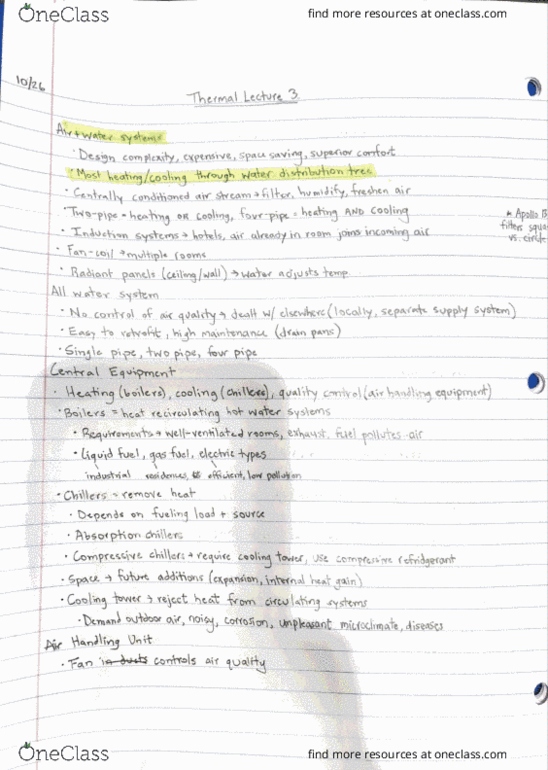 OneClass
find more resources at oneclass.com
10/26
Thermal Lecture 3
Air + water systems
· Design complexity, expensive, space saving, superior comfort
· Most heating/cooling through water distribution tree
· Centrally conditioned air stream → filter, humidify, freshen air
· Two-pipe = heating OR cooling, four-pipe = heating AND cooling
* Apollo 13
filters squa
vs. circle
· Induction systems → hotels, air already in room joins incoming air
· Fan-coil → multiple rooms
· Radiant panels (ceiling/wall) → water adjusts temp.
All water system
· No control of air quality → dealt w/ elsewhere (locally, separate supply system)
· Easy to retrofit, high maintenance (drain pans)
· Single pipe, two pipe, four pipe
Central Equipment
· Heating (boilers), cooling (chillers), quality control (air handling equipment)
· Boilers = heat recirculating hot water systems
· Requirements → well-ventilated rooms, exhaust, fuel pollutes air
· Liquid fuel, gas fuel, electric types
industrial residences, efficient, low pollution
· Chillers = remove heat
· Depends on fueling load + source
· Absorption chillers
· Compressive chillers → require cooling tower, use compressive refridgerant
· Space → future additions (expansion, internal heat gain)
· Cooling tower → reject heat from circulating systems
· Demand outdoor air, noisy, corrosion, unpleasant microclimate, diseases
Air Handling Unit
· Fan in ducts controls air quality
OneClass
find more resources at oneclass.com